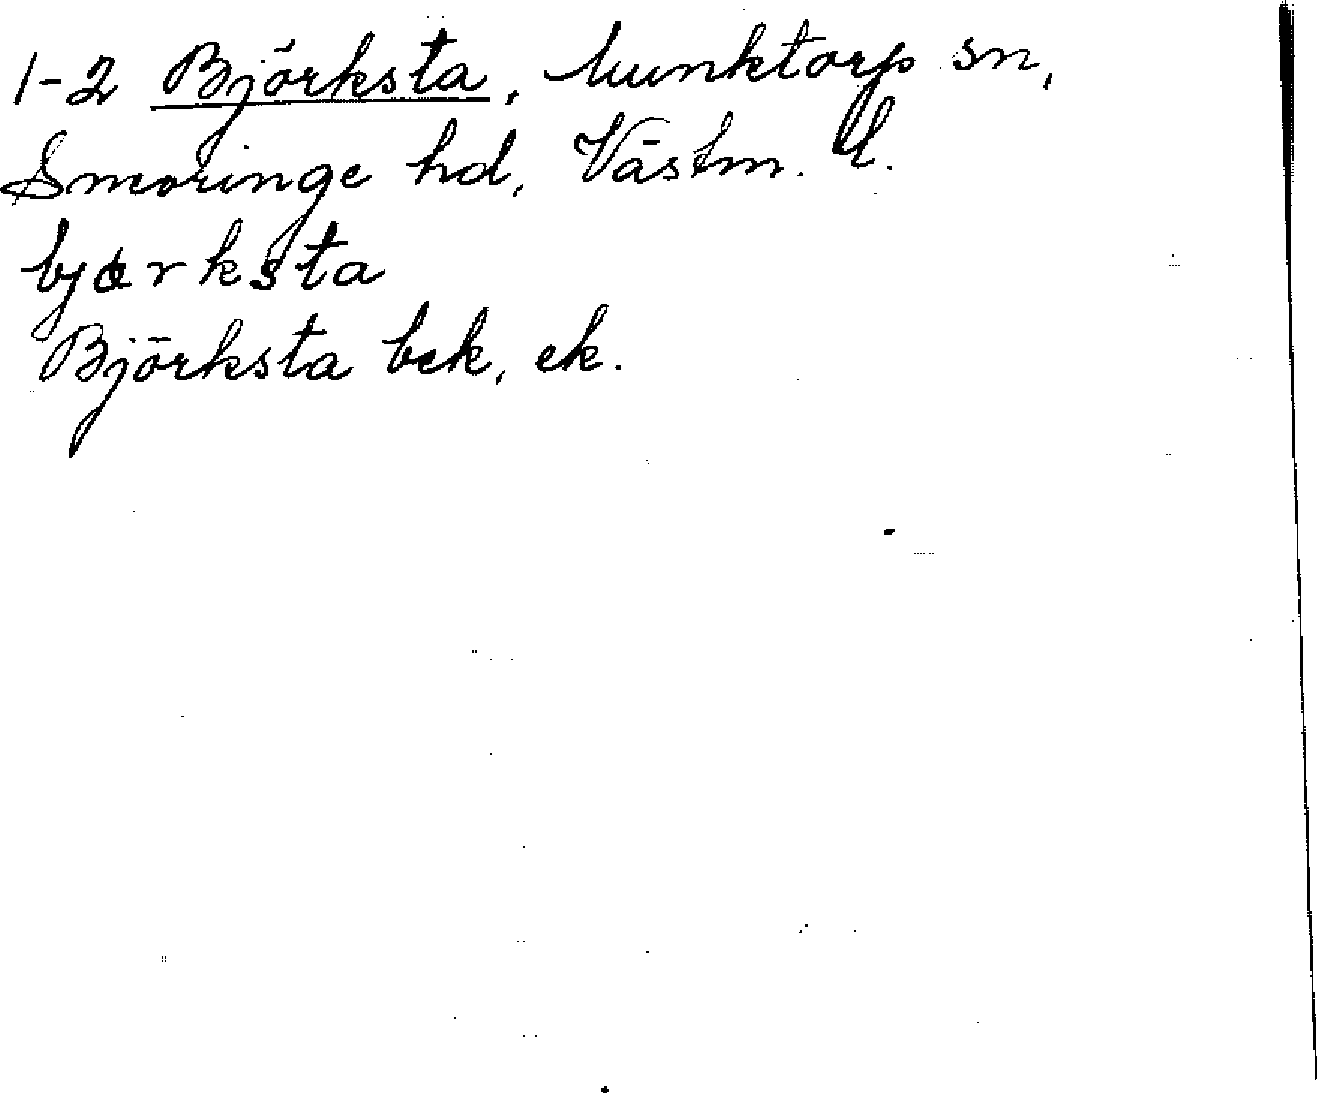 1-2 Björksta, Munktorp sn,
Snevringe hd, Västm. l.
bjœrksta
Björksta bek, ek.